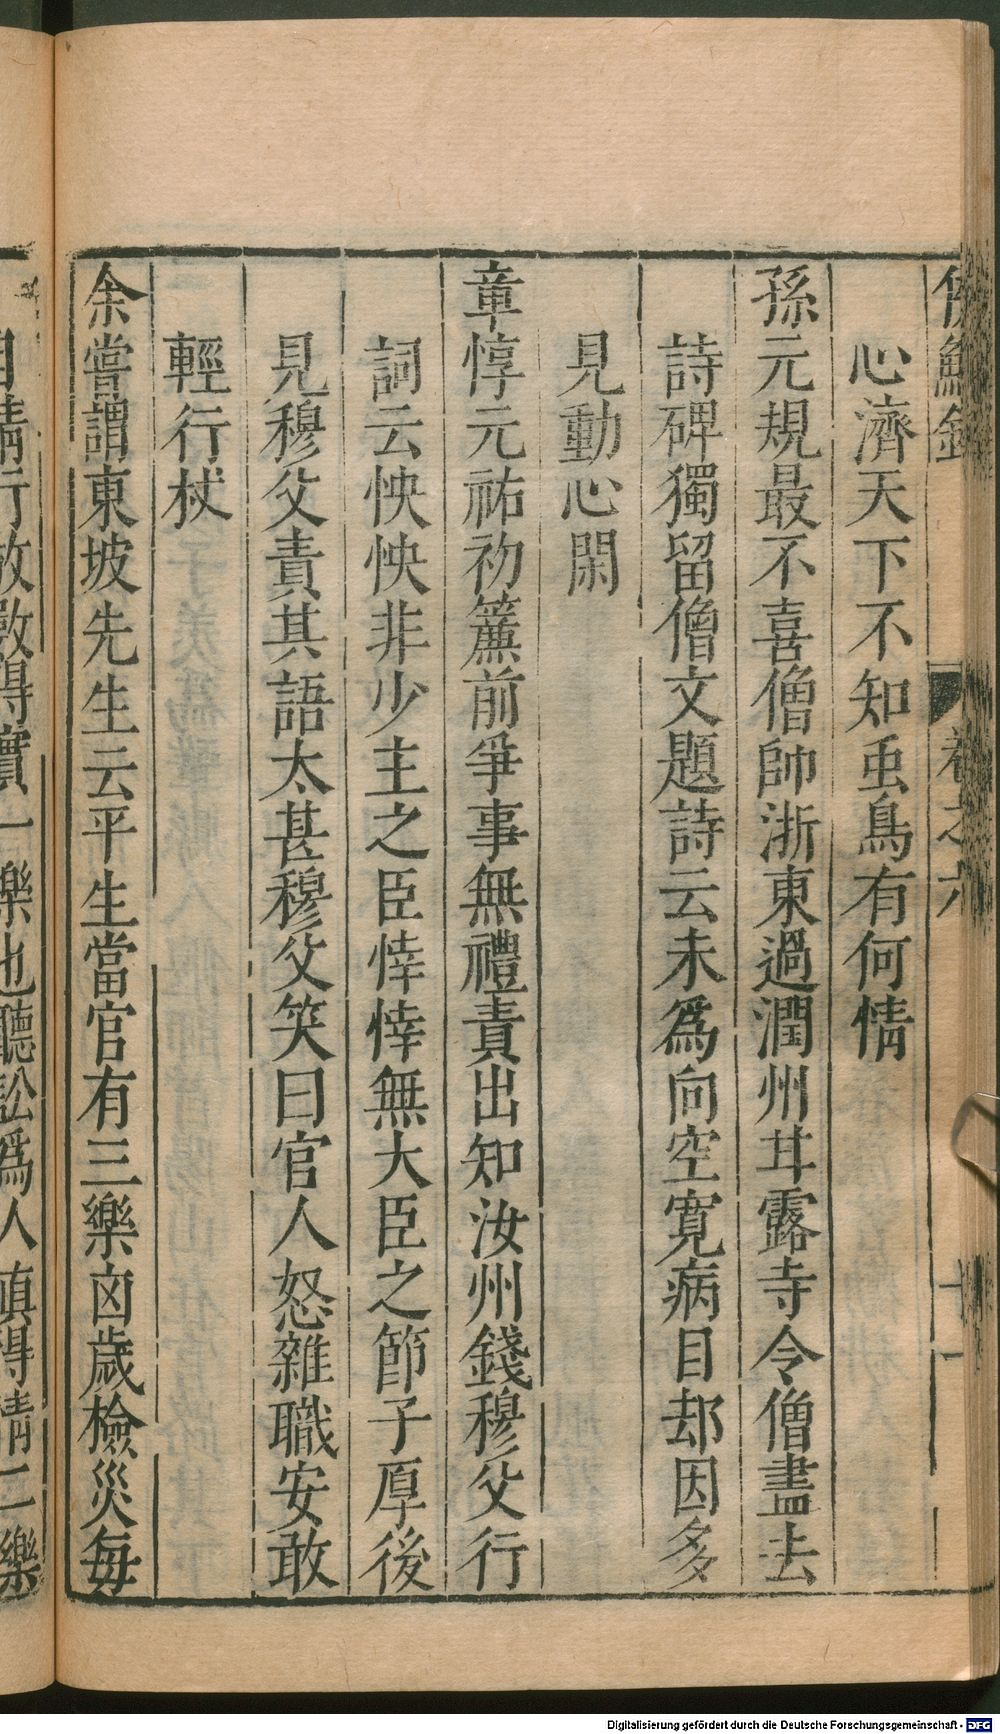 侯鯖錄 卷之六 十一
心濟天下不知䖝鳥有何情
孫元規最不喜僧帥浙東過潤州甘露寺令僧盡去
詩碑獨留僧文題詩云未爲向空寬病目却因多
見動心閑
章惇元祐初簾前爭事無禮責出知汝州錢穆父行
詞云怏怏非少主之臣悻悻無大臣之節子厚後
見穆父責其語太甚穆父笑曰官人怒雜職安敢
輕行杖
余嘗謂東坡先生云平生當官有三樂凶歲檢災每
自請行放數得實一樂也聽訟爲人傎得情二樂
Digitalisierung gefördert durch die Deutsche Forschungsgemeinschaft - DFG